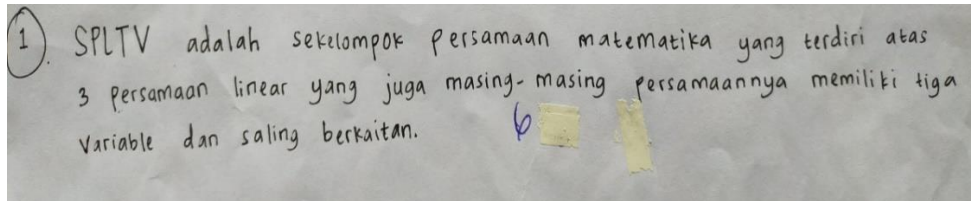 1). SPLTV adalah sekelompok persamaan matematika yang terdiri atas
3 persamaan linear yang juga masing-masing persamaannya memiliki tiga
variable dan saling berkaitan. 6